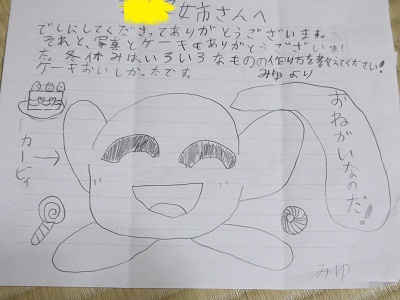 姉市さんへ
でしにしてくださってありがとうございます。
それと、写真とケーキもありがとうございました。
冬休みはいろいろなものの作り方を教えてください!
ケーキおいしかったです
みゆより
カービィ
おねがいなのだ!
みゆ